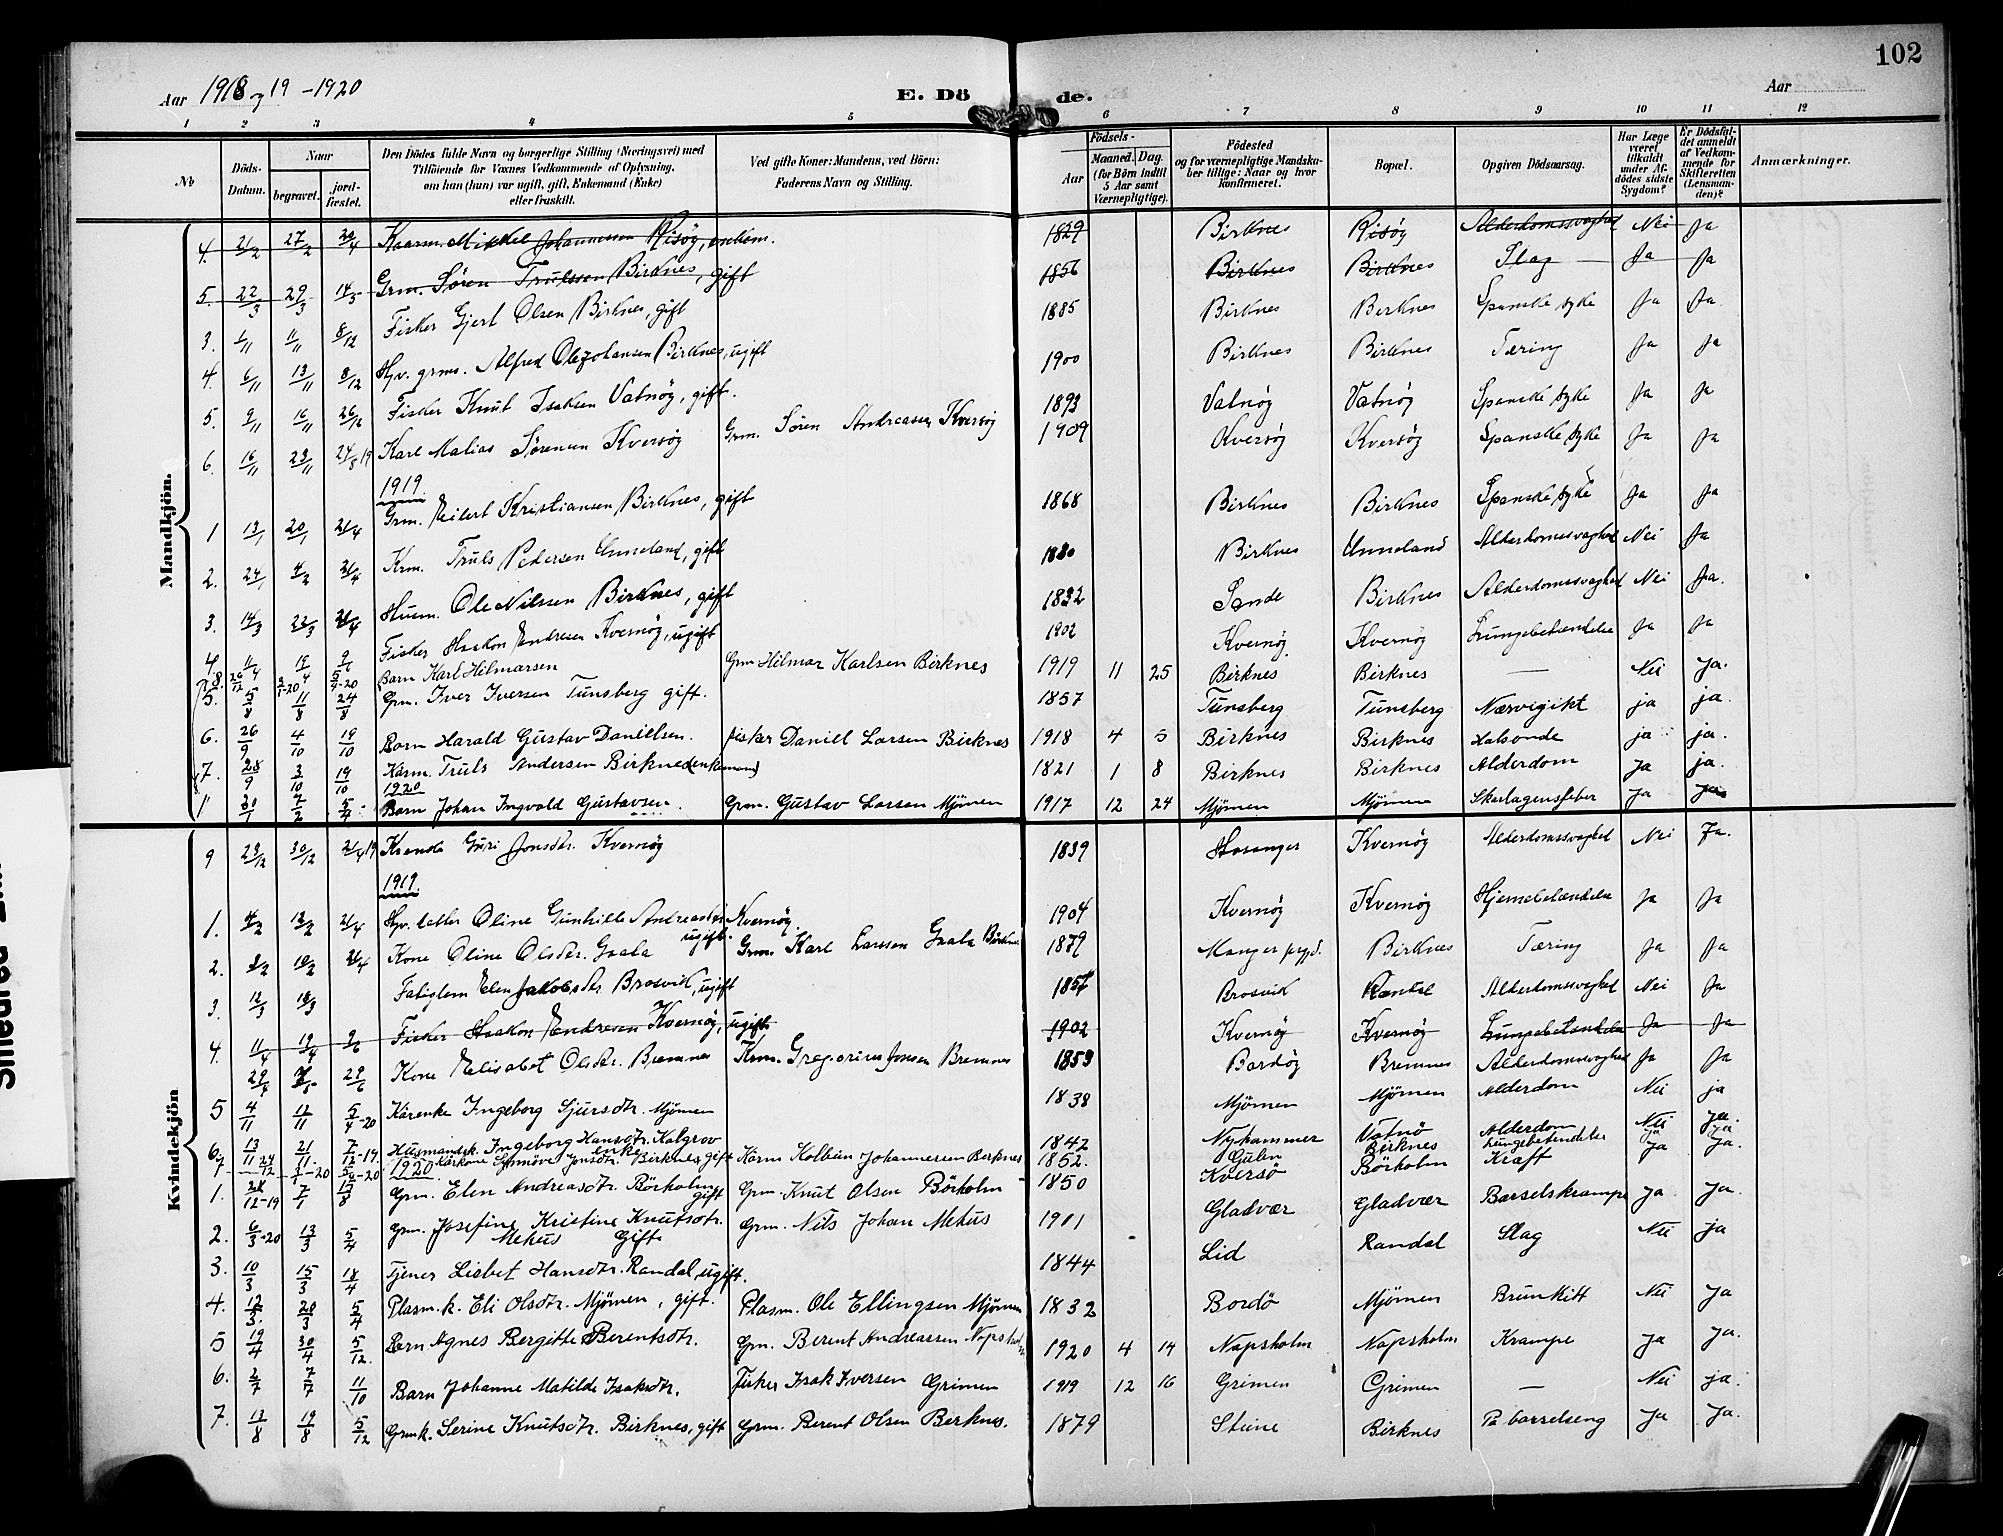 102
Aar 1918 og 19 - 1920 E. Dö de. Aar
1 2 3 4 5 6 7 8 9 10 11 12
No Döds-Datum. Naar begravet. jord-fæstet. Den Dödes fulde Navn og borgerlige Stilling (Næringsvei) med Tilföiende för Voxnes Vedkommende af Oplysning, om han (hun) var ugift, gift, Enkemand (Enke) eller fraskilt. Ved gifte Koner: Mandens, ved Börn: Faderens Navn og Stilling. Födsels- Aar Maaned. Dag. (for Börn indtil 5 Aar samt Værnepligtige). Födested og for værnepligtige Mandska-ber tillige: Naar og hvor konfirmeret. Bopæl. Opgiven Dödsaarsag. Har Læge været tilkaldt under Af-dödes sidste Sygdom? Er Dödsfal-det anmeldt af Vedkom-mende for Skifteretten (Lensman-den)? Anmærkninger.
Mandkjön.
4. 21/2 27/2 20/4 Kaarm. Mikkel Johannessen Risöy, enkem. 1829 Birknes Risöy Alderdomssvaghed Nei Ja
5. 22/3 29/3 14/5 Grm. Sören Trulssen Birknes, gift 1856 Birknes Birknes Slag Ja Ja
3. 1/11 11/11 8/12 Fisker Gjert Olsen Birknes, gift 1885 Birknes Birknes Spanske syke Ja Ja.
4. 6/11 13/11 8/12 Hjv. grms. Alfred Olejohansen Birknes, ugift 1900 Birknes Birknes Tæring Ja Ja
5. 9/11 16/11 26/12 Fisker Knut Isaksen Vatnöy, gift. 1893 Vatnöy Vatnöy Spanske syke Ja Ja
6. 16/11 23/11 24/8 19 Karl Matias Sörensen Kversöy Grm. Sören Andreassen Kversöy 1909 Kversöy Kversöy Spanske syke Ja Ja
1919
1 13/1 20/1 21/4 Grm. Eilert Kristiansen Birknes, gift 1868 Birknes Birknes Spanske syke Ja Ja
2. 24/1 4/2 21/4 Krm. Truls Pedersen Unneland, gift 1830 Birknes Unneland Alderdomssvaghed Nei Ja
3. 14/3 22/3 21/4 Husm. Ole Nilssen Birknes, gift 1832 Sande Birknes Alderdomssvaghed Nei Ja.
4 11/4 19/4 9/6 Fisker Haakon Endresen Kvernöy, ugift 1902 Kvernöy Kvernöy Lungebetændelse Ja Ja
8. 26/12 2/1-20 5/4-20 Barn Karl Hilmarsen Grm Hilmar Karlsen Birknes 1919 11 25 Birknes Birknes — Nei Ja.
5. 5/8 11/8 24/8 Grm. Iver Iversen Tunsberg gift. 1857 Tunsberg Tunsberg Nærvigikt ja ja.
6. 26/9 4/10 19/10 Barn Harald Gustav Danielsen. fisker Daniel Larsen Birknes 1918 4 5 Birknes Birknes Halsonde ja ja.
7. 28/9 3/10 19/10 Kårm. Truls Andersen Birknes (enkemand) 1821 1 8 Birknes Birknes Alderdom Ja ja.
1920
1 30/1 7/2 5/4 Barn Johan Ingvald Gustavsen. Grm. Gustav Larsen Mjömen 1917 12 24 Mjömen Mjömen Skarlagensfeber Ja ja
Kvindekjön
9 23/12 30/12 21/4 19 Kaarenke Guri Jonsdtr. Kvernöy 1839 Hosanger Kvernöy Alderdomssvaghed Nei Ja.
1919.
1. 4/2 12/2 21/4 Hjv. datter Oline Gunhilde Andreasdtr Kvernöy. ugift. 1904 Kvernöy Kvernöy Hjernebetændelse Ja Ja
2. 8/2 18/2 21/4 Kone Oline Olsdtr. Graala Grm. Karl Larssen Graala Birknes 1879 Manger prgd. Birknes Tæring Ja Ja
3. 12/3 18/3 Fatiglem Elen Jakobsdtr Brosvik, ugift 1854 Brosvik Randal Alderdomssvaghed Nei Ja
4. 11/4 19/4 9/6 Fisker Haakon Endresen Kvernöy, ugift. 1902 Kvernöy Kvernöy Lungebetændelse Ja Ja
29/4 7/5 29/6 Kone Elisabet Olsdtr. Bremnes Krm. Gregorius Jonsen Bremnes 1853 Bardöy Bremnes Alderdomssvaghed Ja Ja
5 4/11 12/11 5/4-20 Kårenke Ingeborg Sjursdtr. Mjömen 1838 Mjömen Mjömen Alderdom Nei ja
6. 13/11 21/11 7/12-19 Husmandsk. Ingeborg Hansdtr. Kalgrov enke 1842 Nyhammer Vatnö Alderdom Nei Ja.
7 24/12 3/1-20 5/4-20 Kårkone Synnöve Jensdtr. Birknes, gift Kårm Kolbein Johannesen Birknes 1852. Gulen Birknes Lungebetendelse Ja Ja.
1920
1. 28/12-19 7/1 15/8 Grm. Elen Andreasdtr. Börholm gift Grm. Knut Olsen Börholm 1850 Kversö Börholm Kræft
2. 6/3-20 13/3 5/4 Grm. Josefine Kristine Knutsdtr. Mehus Gift Grm. Nils Johan Mehus 1901 Gladvær Gladvær Barselskrampe Ja Ja.
3. 10/3 15/3 18/4 Tjener Lisbet Hansdtr. Randal, ugift. 1844 Lid Randal Slag Nei ja
4. 12/3. 20/3 5/4 Plasm. k. Eli Olsdtr. Mjömen, gift. Plasm. Ole Ellingsen Mjömen 1832 Bordö Mjömen Brunkitt Nei Ja
5 19/4 30/4 5/12. Barn Agnes Bergitte Berentsdtr. Grm. Berent Andreassen Napsholm 1920 4 14 Napsholm Napsholm Krampe Ja Ja.
6. 2/7 7/7 11/10 Barn Johanne Matilde Isaksdtr. Fisker Isak Iversen Grimen 1919 12 16 Grimen Grimen — Nei ja.
7. 13/8 19/8 5/12 Grmk. Serine Knutsdtr. Birknes, gift Grm. Berent Olsen Berknes. 1879 Steine Birknes På barselseng Ja Ja.